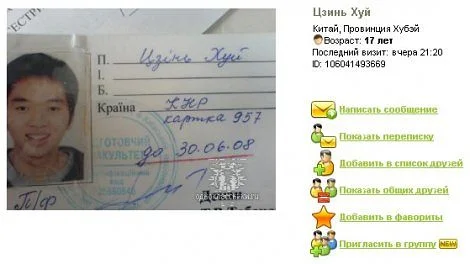 П. Цзінь Хуй
І.
Б.
Країна КНР
картка 957
ГОТОВЧИЙ
АКУЛЬТЕТ
до 30.06.08
П/Ф
Цзинь Хуй
Китай, Провинция Хубэй
Возраст: 17 лет
Последний визит: вчера 21:20
ID: 106041493669
Написать сообщение
Показать переписку
Добавить в список друзей
Показать общих друзей
Добавить в фавориты
Пригласить в группу NEW